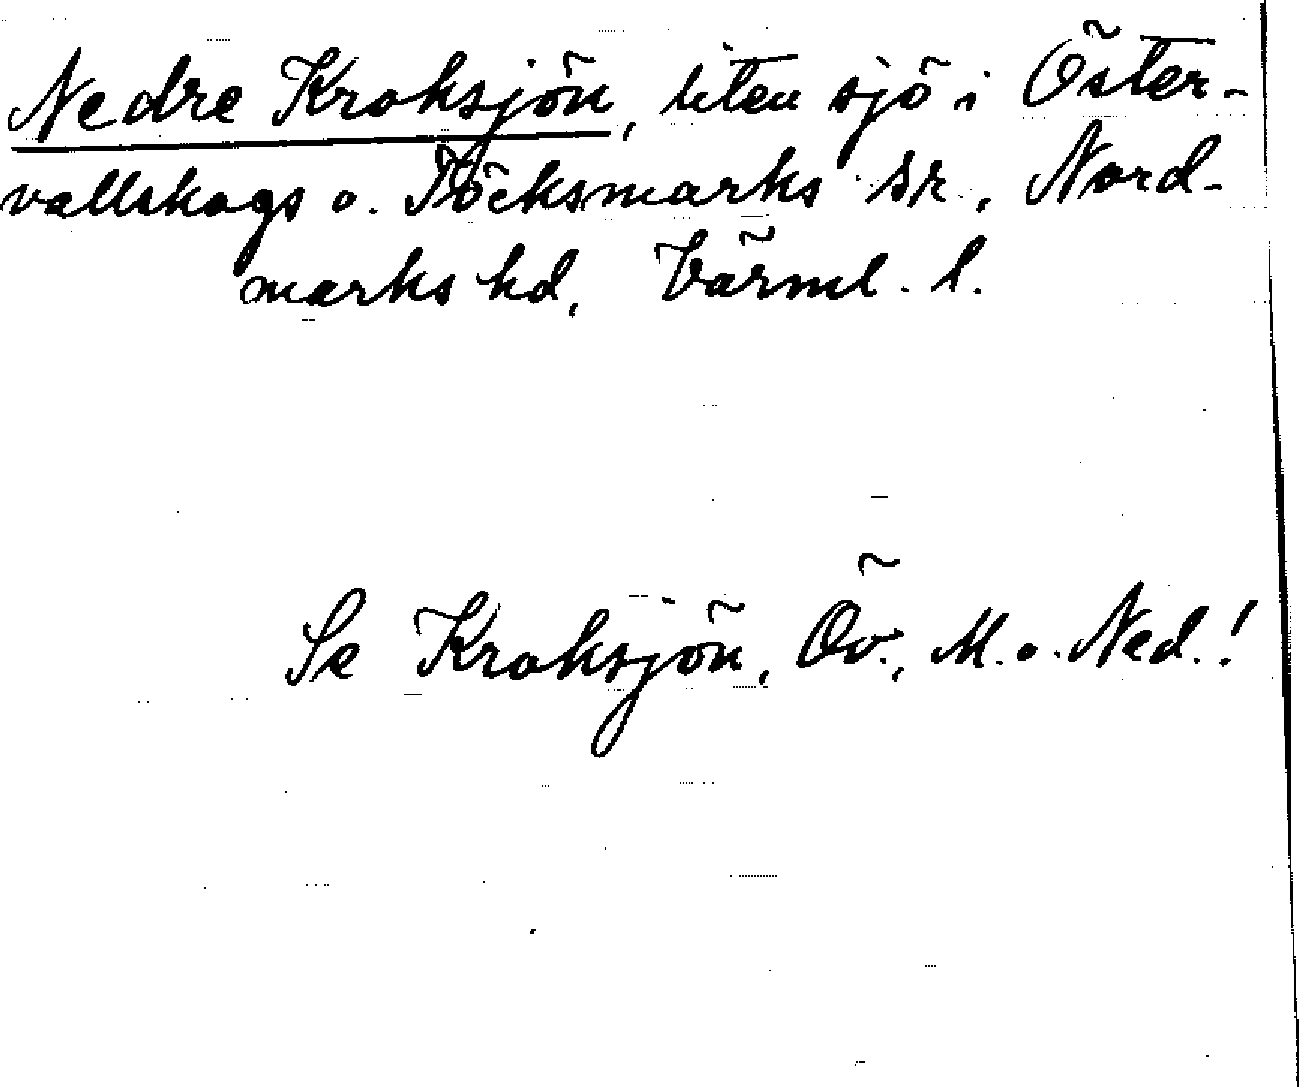 Nedre Kroksjön, liten sjö i Öster-
vallskogs o. Töcksmarks sr., Nord-
marks hd, Värml. l.
Se Kroksjön, Öv., M. o. Ned.!